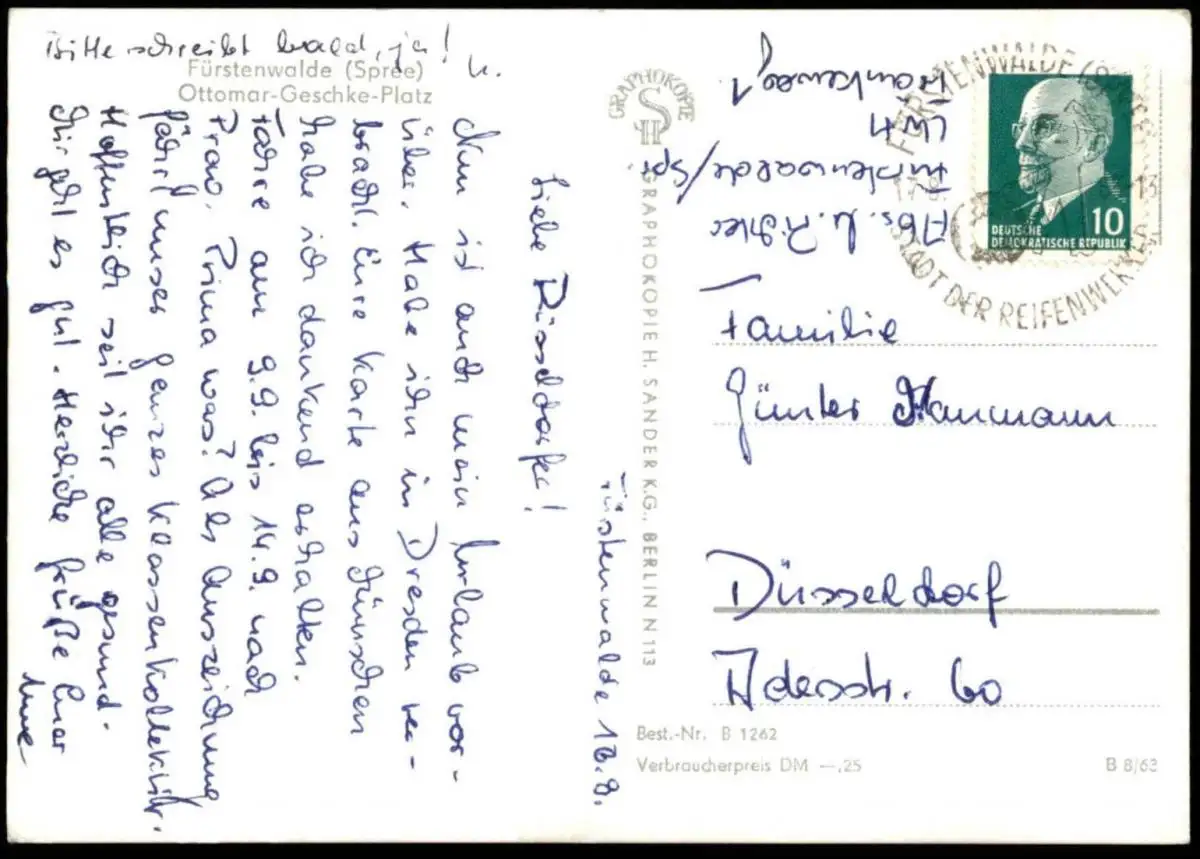 Bitte schreibt bald, ja! U.
Fürstenwalde (Spree)
Ottomar-Geschke-Platz
Fürstenwalde 18.8.
Liebe Düsseldorfer!
Nun ist auch mein Urlaub vor-
über. Habe ihn in Dresden ver-
bracht. Eure Karte aus
habe ich dankend erhalten.
Fahre am 9.9. bis 14.9. nach
Prag. Prima was? Als Auszeichnung
fährt unser ganzes Klassenkollektiv.
Hoffentlich seit ihr alle gesund.
Mir geht es gut. Herzliche Grüße Euer
Uwe
GRAPHOKOPIE
H
GRAPHOKOPIE H. SANDER K.G., BERLIN N 113
Abs. U. Richter
Fürstenwalde/Spr
Frankeweg 1
FÜRSTENWALDE (SPREE)
STADT DER REIFENWERKER
10
DEUTSCHE
DEMOKRATISCHE REPUBLIK
Familie
Günter Hanmann
Düsseldorf
Adersstr. 60
Best.-Nr. B 1262
Verbraucherpreis DM —,25
B 8/63